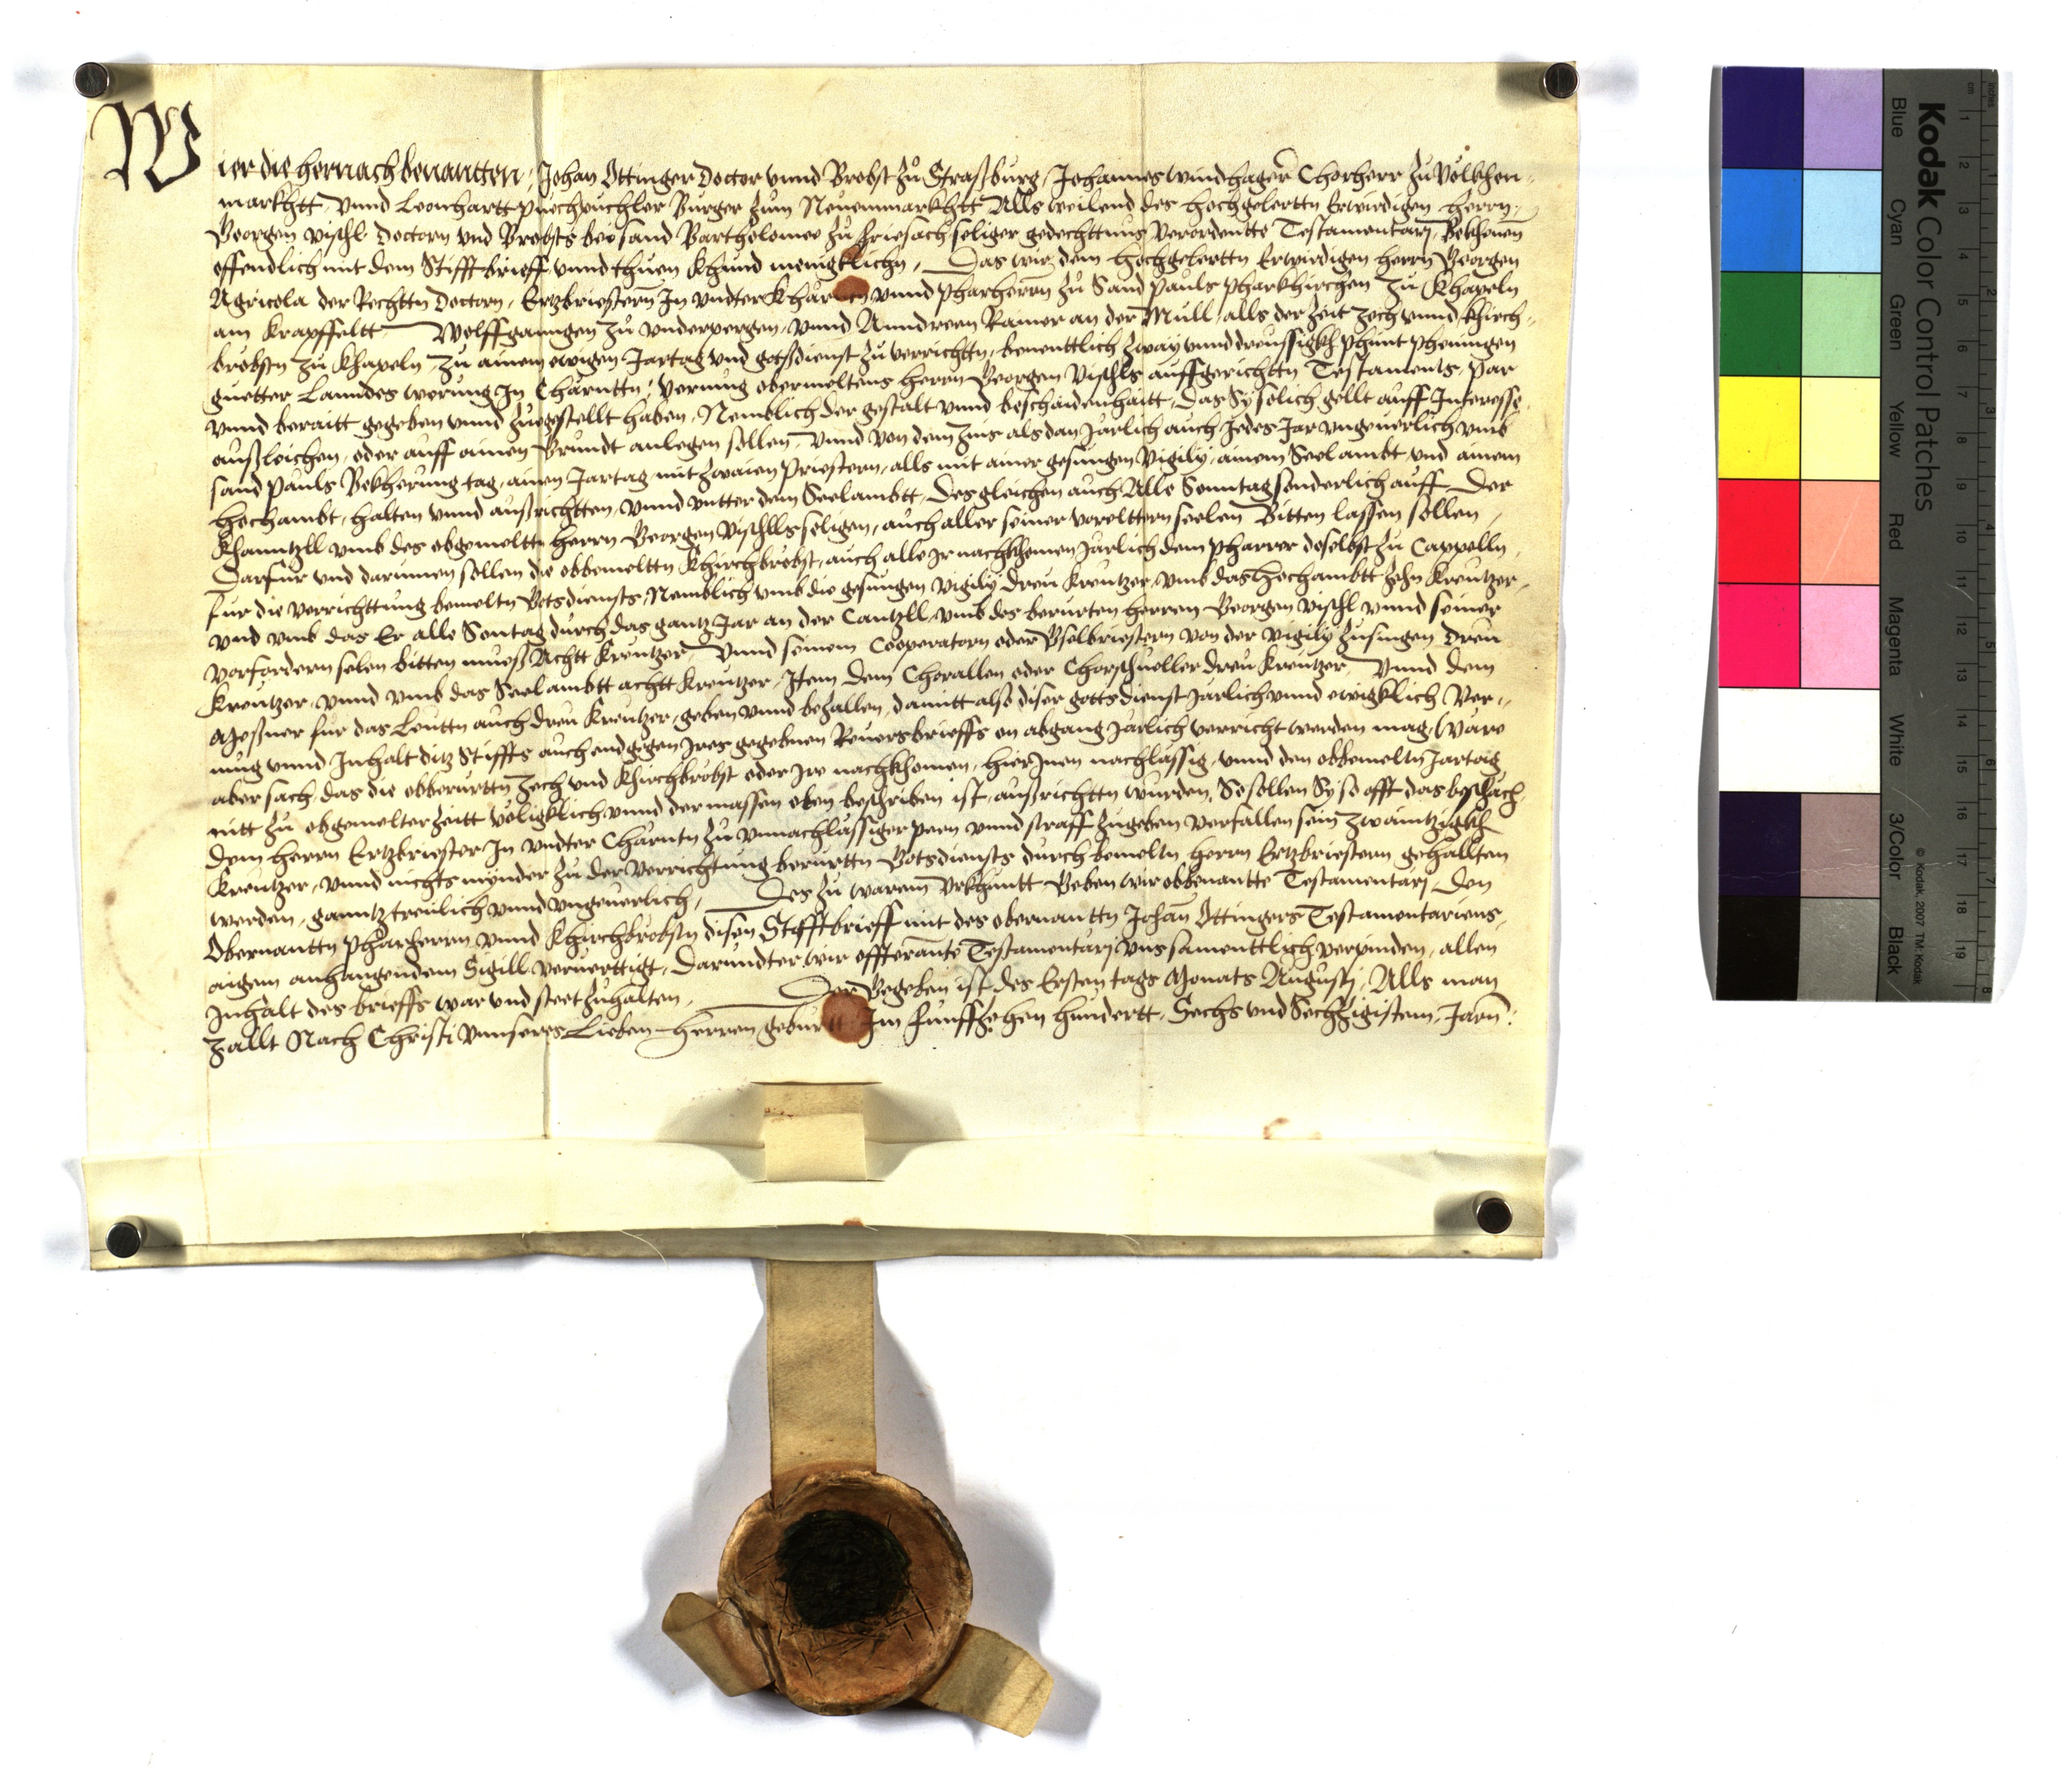 Wier die hernach benantten, Johan Ottinger Doctor vnnd Brobst zů Straßburg, Johannes windhager Chorherr zů Völkhen-
markhtt, vnnd Leonhartt puechpüchler Burger zum Neuenmarkhtt Alls weilend des hochgelertn Erwirdigen herrn
Georgen vischl Doctorn vnd Brobsts bei sand Bartholomee zů friesach seliger gedechttnus verordentte Testamentarj, Bekhenen
offendlich mit dem Stifftbrieff, vnnd thuen khund menigklichn, Das wir dem hochgelerttn Erwirdigen herrn Georgen
Agricola der Rechttn Doctorn, Ertzbriestern In vndter Kharntn vnnd pharherrn zů Sand pauls pharkhirchen zu Khapeln
am krapffeltt Wolffganngen zů vnderpergen, vnnd Anndreen Ramer an der Mull, alls der zeit zech vnnd khirch-
brobstn zu Khapeln, zu ainem ewigen Jartag vnd gotsdienst zů verrichttn, benenttlich zway vnnd dreussigkh phunt phenningen
guetter Lanndes werung In Chärnttn, vernug obermeltens herrn Georgen vischls auffgerichttn Testaments, par
vnnd beraitt gegeben vnnd zuegestellt haben, Nemblich der gestalt vnnd beschaidenhaitt, Das Sy solich gellt auff Interesse
außleichen, oder auff ainen Grundt anlegen sollen, vnnd von dem zins alsdan Järlich auch Jedes Jar vngeuerlich vmb
sand Pauls Bekherung tag, ainen Jartag mit zwaien priestern, alls mit ainer gesungen Vigily, ainem Seelambt vnd ainem
hochambt, halten vnnd außrichtten, vnnd vntter dem Seelambtt, Desgleichen auch Alle Sonntag sonderlich auff Der
Khanntzll vmb des obgemeltn herrn Georgen Vischlls seligen, auch aller seiner vorelttern seelen Bitten lassen sollen,
Darfur vnd darumen sollen die obbemeltn Khirchbröbst, auch alle Jr nachkhomen Järlich dem pharrer doselbst zu Cappelln
fur die verrichttung bemeltn Gotsdiensts, Nemblich vmb die gesungen vigily dreu kreutzer, vmb das hochambtt zehn kreutzer,
vnd vmb das Er alle Sontag durch das gantz Jar an der Cantzll, vmb des berurten herren Georgen vischl vnnd seiner
vorfordern selen bitten muess Achtt kreutzer, vnnd seinem Cooperatorn oder Gselbriestern von der vigily zusingen dreu
kreutzer, vnnd vmb das Seelambtt achtt kreutzer, Item dem Chorallen oder Chorschueller dreu kreutzer, vnnd dem
Messner für das Leuttn auch dreu kreutzer, geben vnnd bezallen, damitt also diser gottsdienst Järlich vnnd ewigklich Ver-
nug vnnd Inhalt ditz Stiffts auch endgegen Jres gegebnen Reuersbrieffs on abgang Järlich verricht werden mag, Ware
aber sach, das die obberurttn zech vnd khirchbröbst oder Jre nachkhomen, hierInen nachlässig, vnnd den obbemeltn Jartag
nitt zů obgemelter zeitt völigklich vnnd dermassen oben beschriben ist, außrichttn wurden, So sollen Sy so offt das beschäch
dem herrn Ertzbriester In vndter Chärntn zu vnnachlässiger peen vnnd straff zugeben verfallen sein zwaintzigkh
kreutzer, vnnd nichts mynder zu der verrichtung berurttn Gotsdiensts durch bemeltn herrn Ertzbriestern gehallten
werden, ganntz treulich vnnd vngeuerlich, Des zu warem Vrkhuntt Geben wir obbenantte Testamentarj, Den
Obernanttn pharherrn vnnd Khirchbröbstn disen Stifftbrieff mit des obernanttn Johan Ottingers Testamentariens,
aigem anhangendem Sigill veruerttigt, Darundter wir offternante Testamentarj vns samenttlich verpinden, allen
Inhalt des brieffs war vnd steet zuhalten, Der Gegeben ist des Ersten tags Monats Augustj, Alls man
zallt Nach Christi vnnseres Lieben herren geburtt Im funffzehen hundertt, Sechs vnd Sechzigistem, Jarn.
Kodak Color Control Patches
Blue Cyan Green Yellow Red Magenta White 3/Color Black
© Kodak, 2007 TM: Kodak
cm 1 2 3 4 5 6 7 8 9 10 11 12 13 14 15 16 17 18 19
inches 1 2 3 4 5 6 7 8